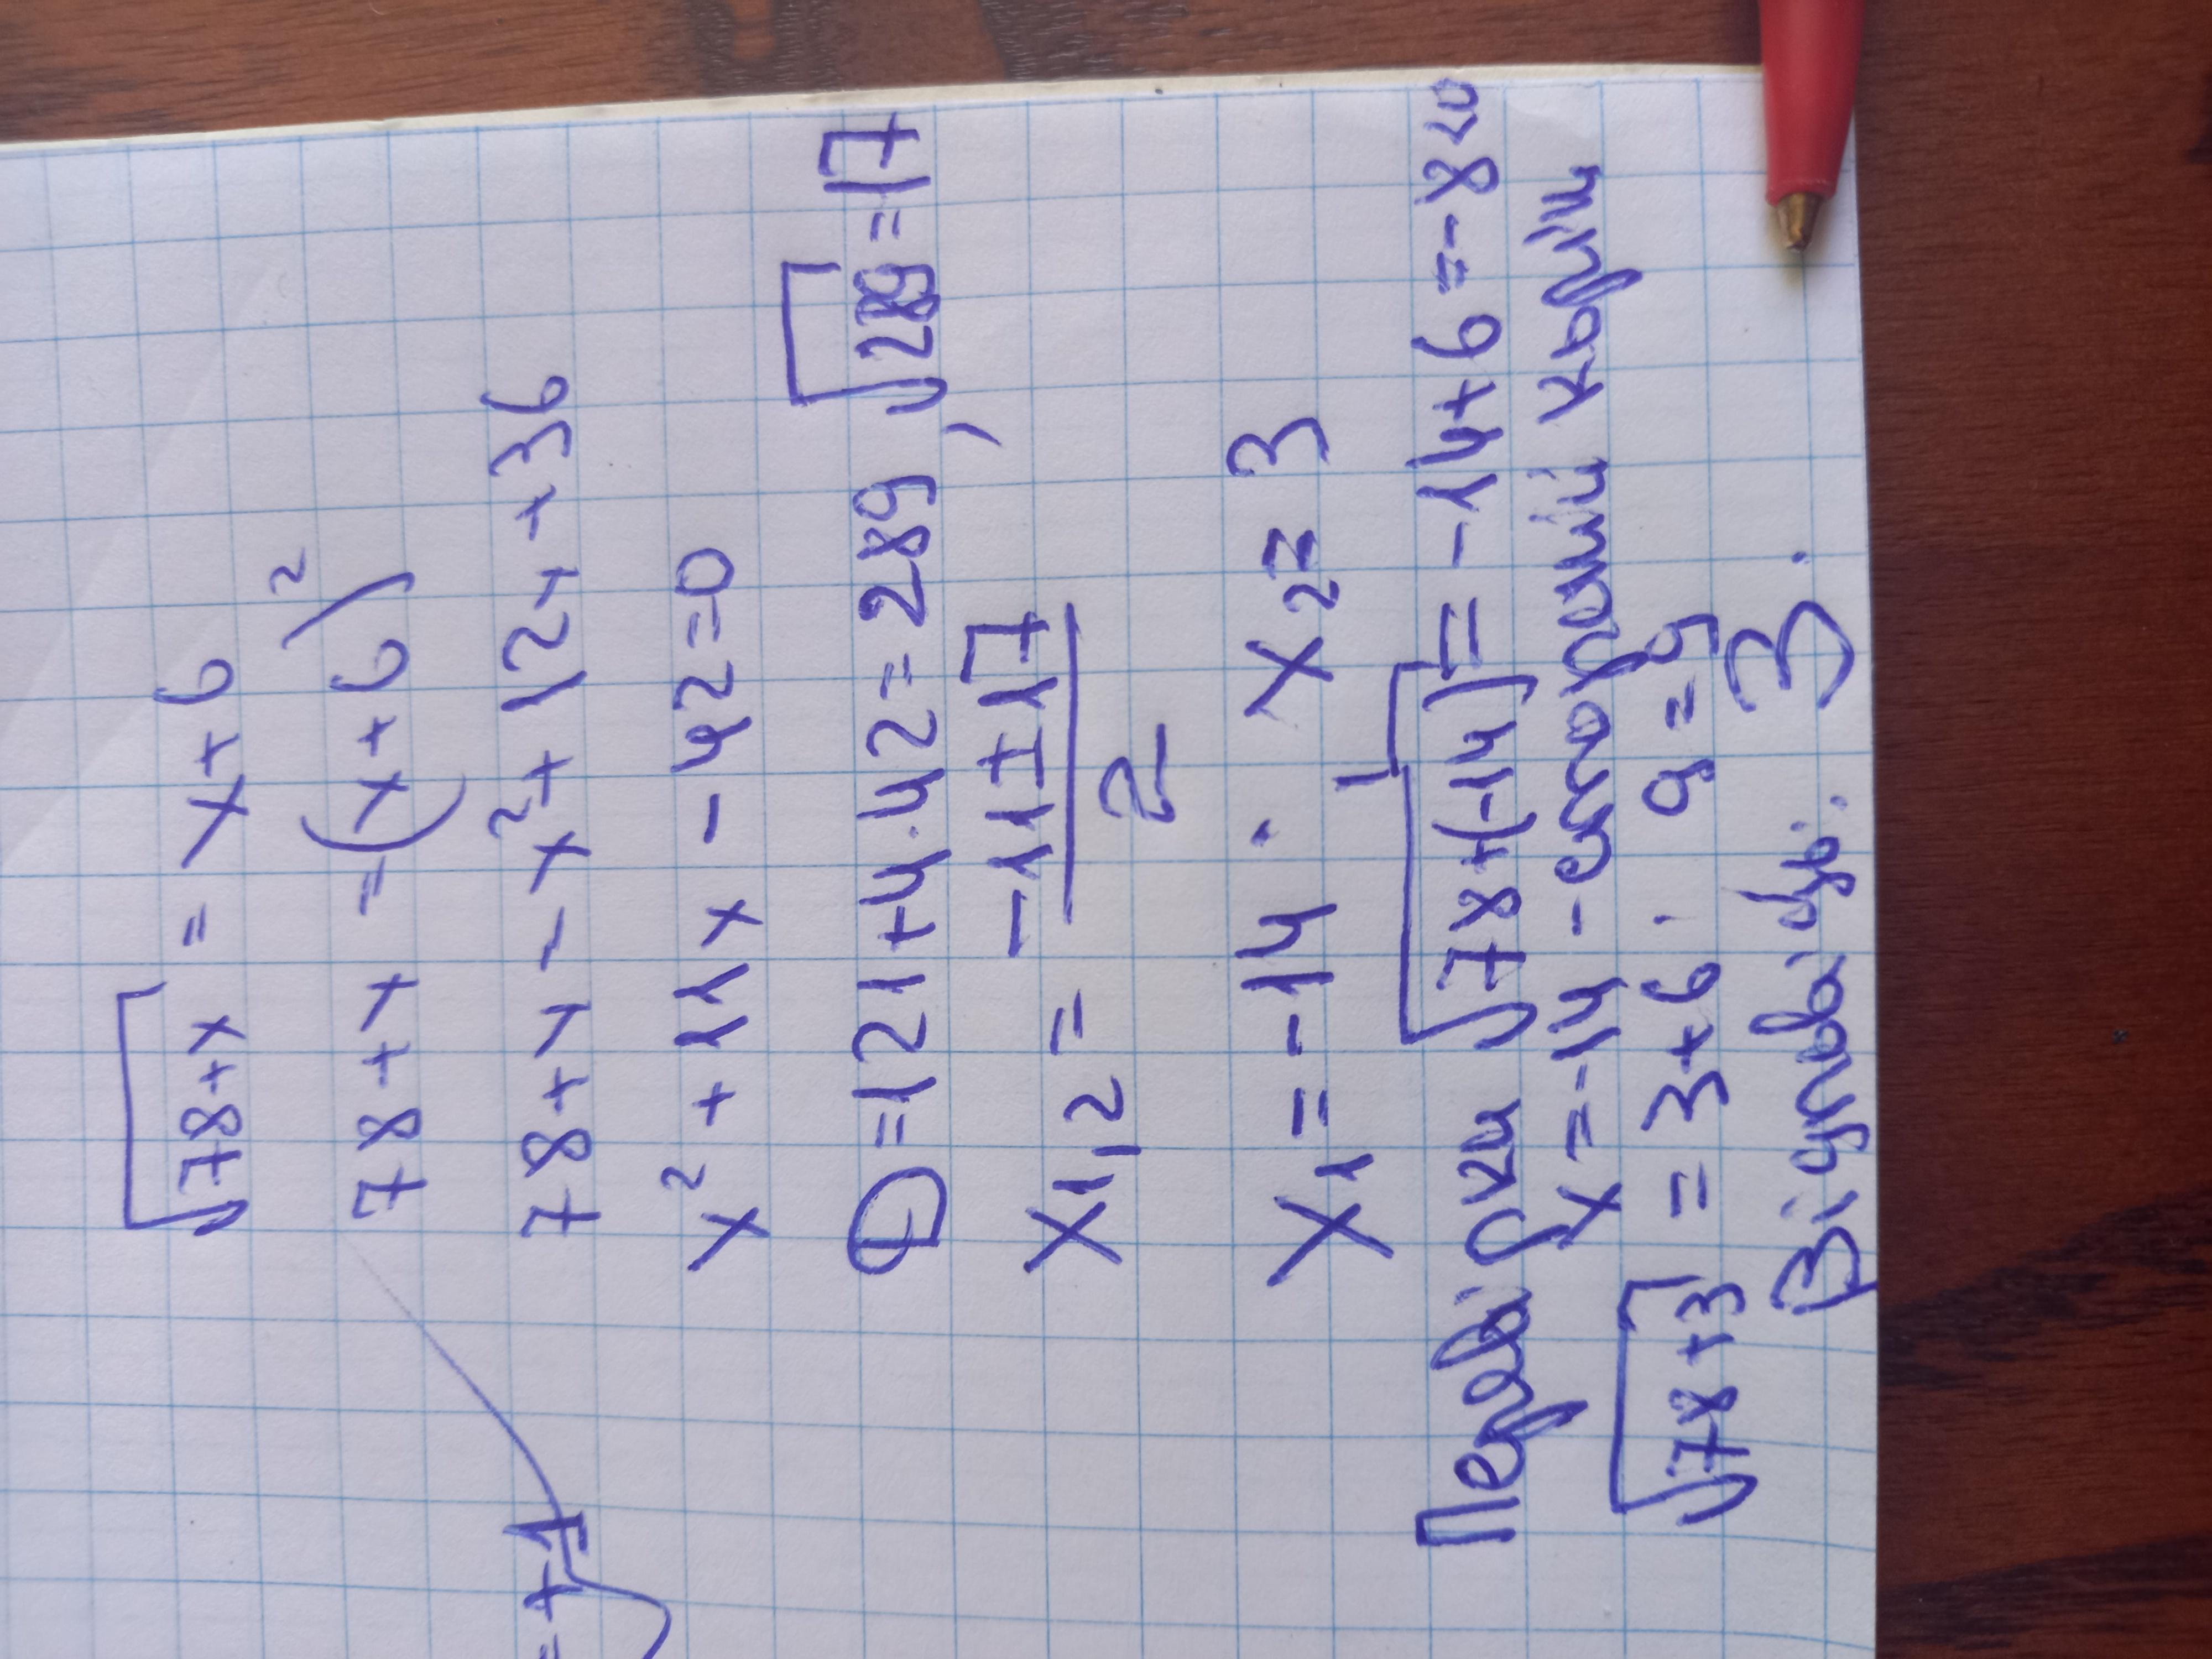 √78+x = x+6
78+x = (x+6)²
78+x = x²+12x+36
x² + 11x - 42=0
D =121+4·42=289, √289=17
x1,2 = -11±17
2
x1=-14 . x2= 3
Перевірки √78+(-14) = -14+6=-8<0
x=-14 -сторонній корінь
√78+3 = 3+6. 9=9
Відповідь: 3.
=+1